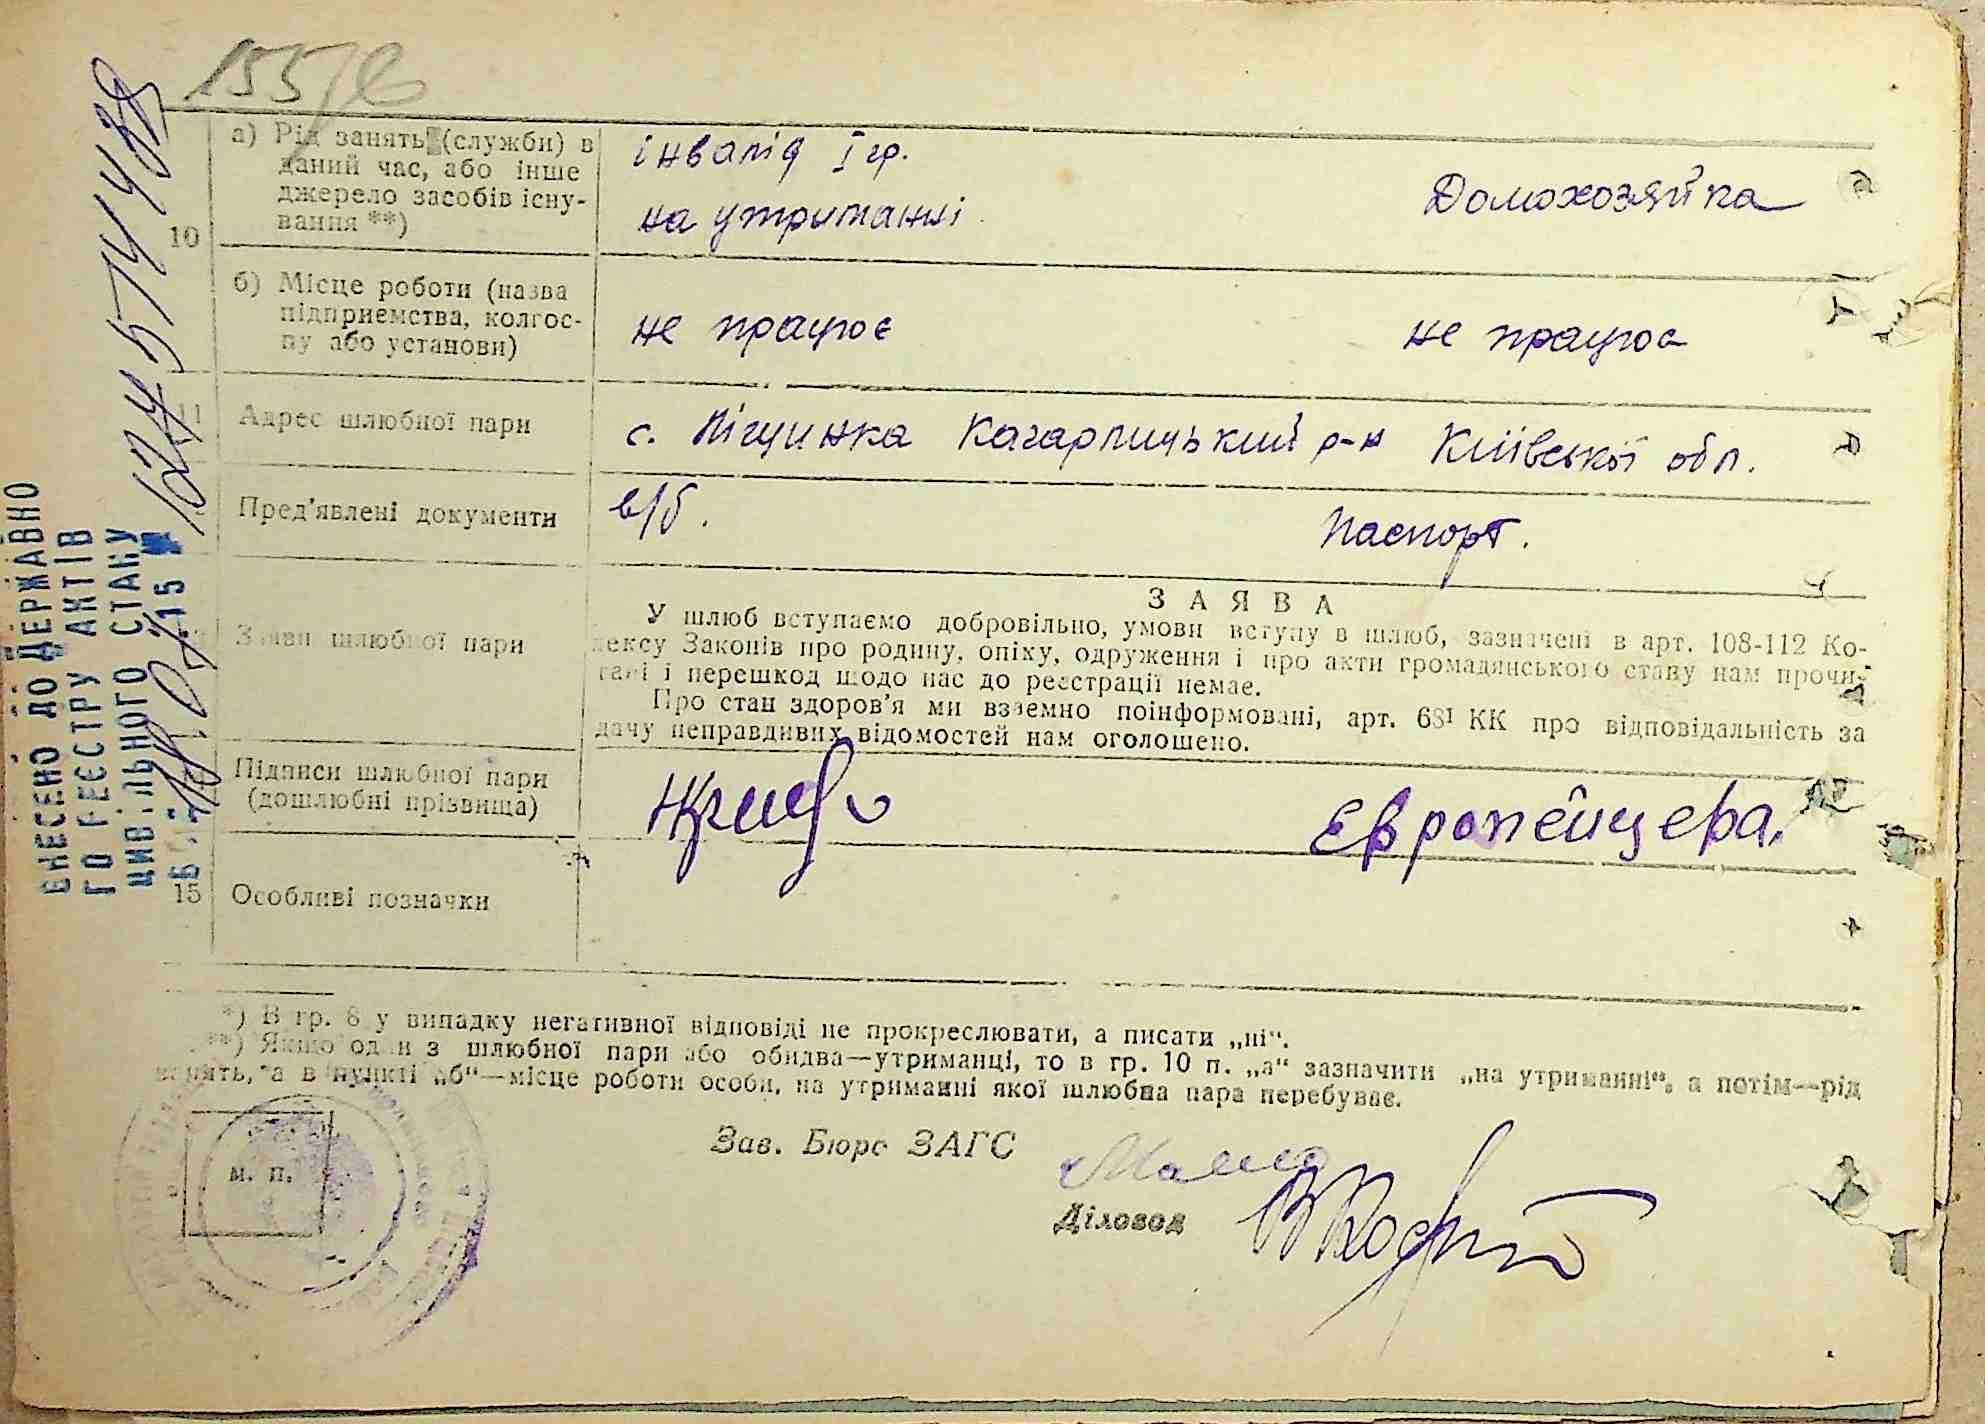 155/в
а) Рід занять (служби) в
даний час, або інше
джерело засобів існу-
вання **)
інвалід I гр.
на утриманні
Домохозяйка
10
б) Місце роботи (назва
підприємства, колгос-
пу або установи)
не працює
не працює
11 Адрес шлюбної пари
с. Кагарлицький р-н Київської обл.
Пред'явлені документи
в/б.
Паспорт.
Заяви шлюбної пари
ЗАЯВА
У шлюб вступаємо добровільно, умови вступу в шлюб, зазначені в арт. 108-112 Ко-
дексу Законів про родину, опіку, одруження і про акти громадянського стану нам прочи-
тані і перешкод щодо нас до реєстрації немає.
Про стан здоров'я ми взаємно поінформовані, арт. 68¹ КК про відповідальність за
дачу неправдивих відомостей нам оголошено.
Підписи шлюбної пари
(дошлюбні прізвища)
Европейцева.
15 Особливі позначки
*) В гр. 8 у випадку негативної відповіді не прокреслювати, а писати „ні“.
**) Якщо один з шлюбної пари або обидва—утриманці, то в гр. 10 п. „а“ зазначити „на утриманні“, а потім—рід
занять, а в пункті „б“—місце роботи особи, на утриманні якої шлюбна пара перебуває.
Зав. Бюро ЗАГС
м. п.
Діловод
ВНЕСЕНО ДО ДЕРЖАВНО
ГО РЕЄСТРУ АКТІВ
ЦИВІЛЬНОГО СТАНУ